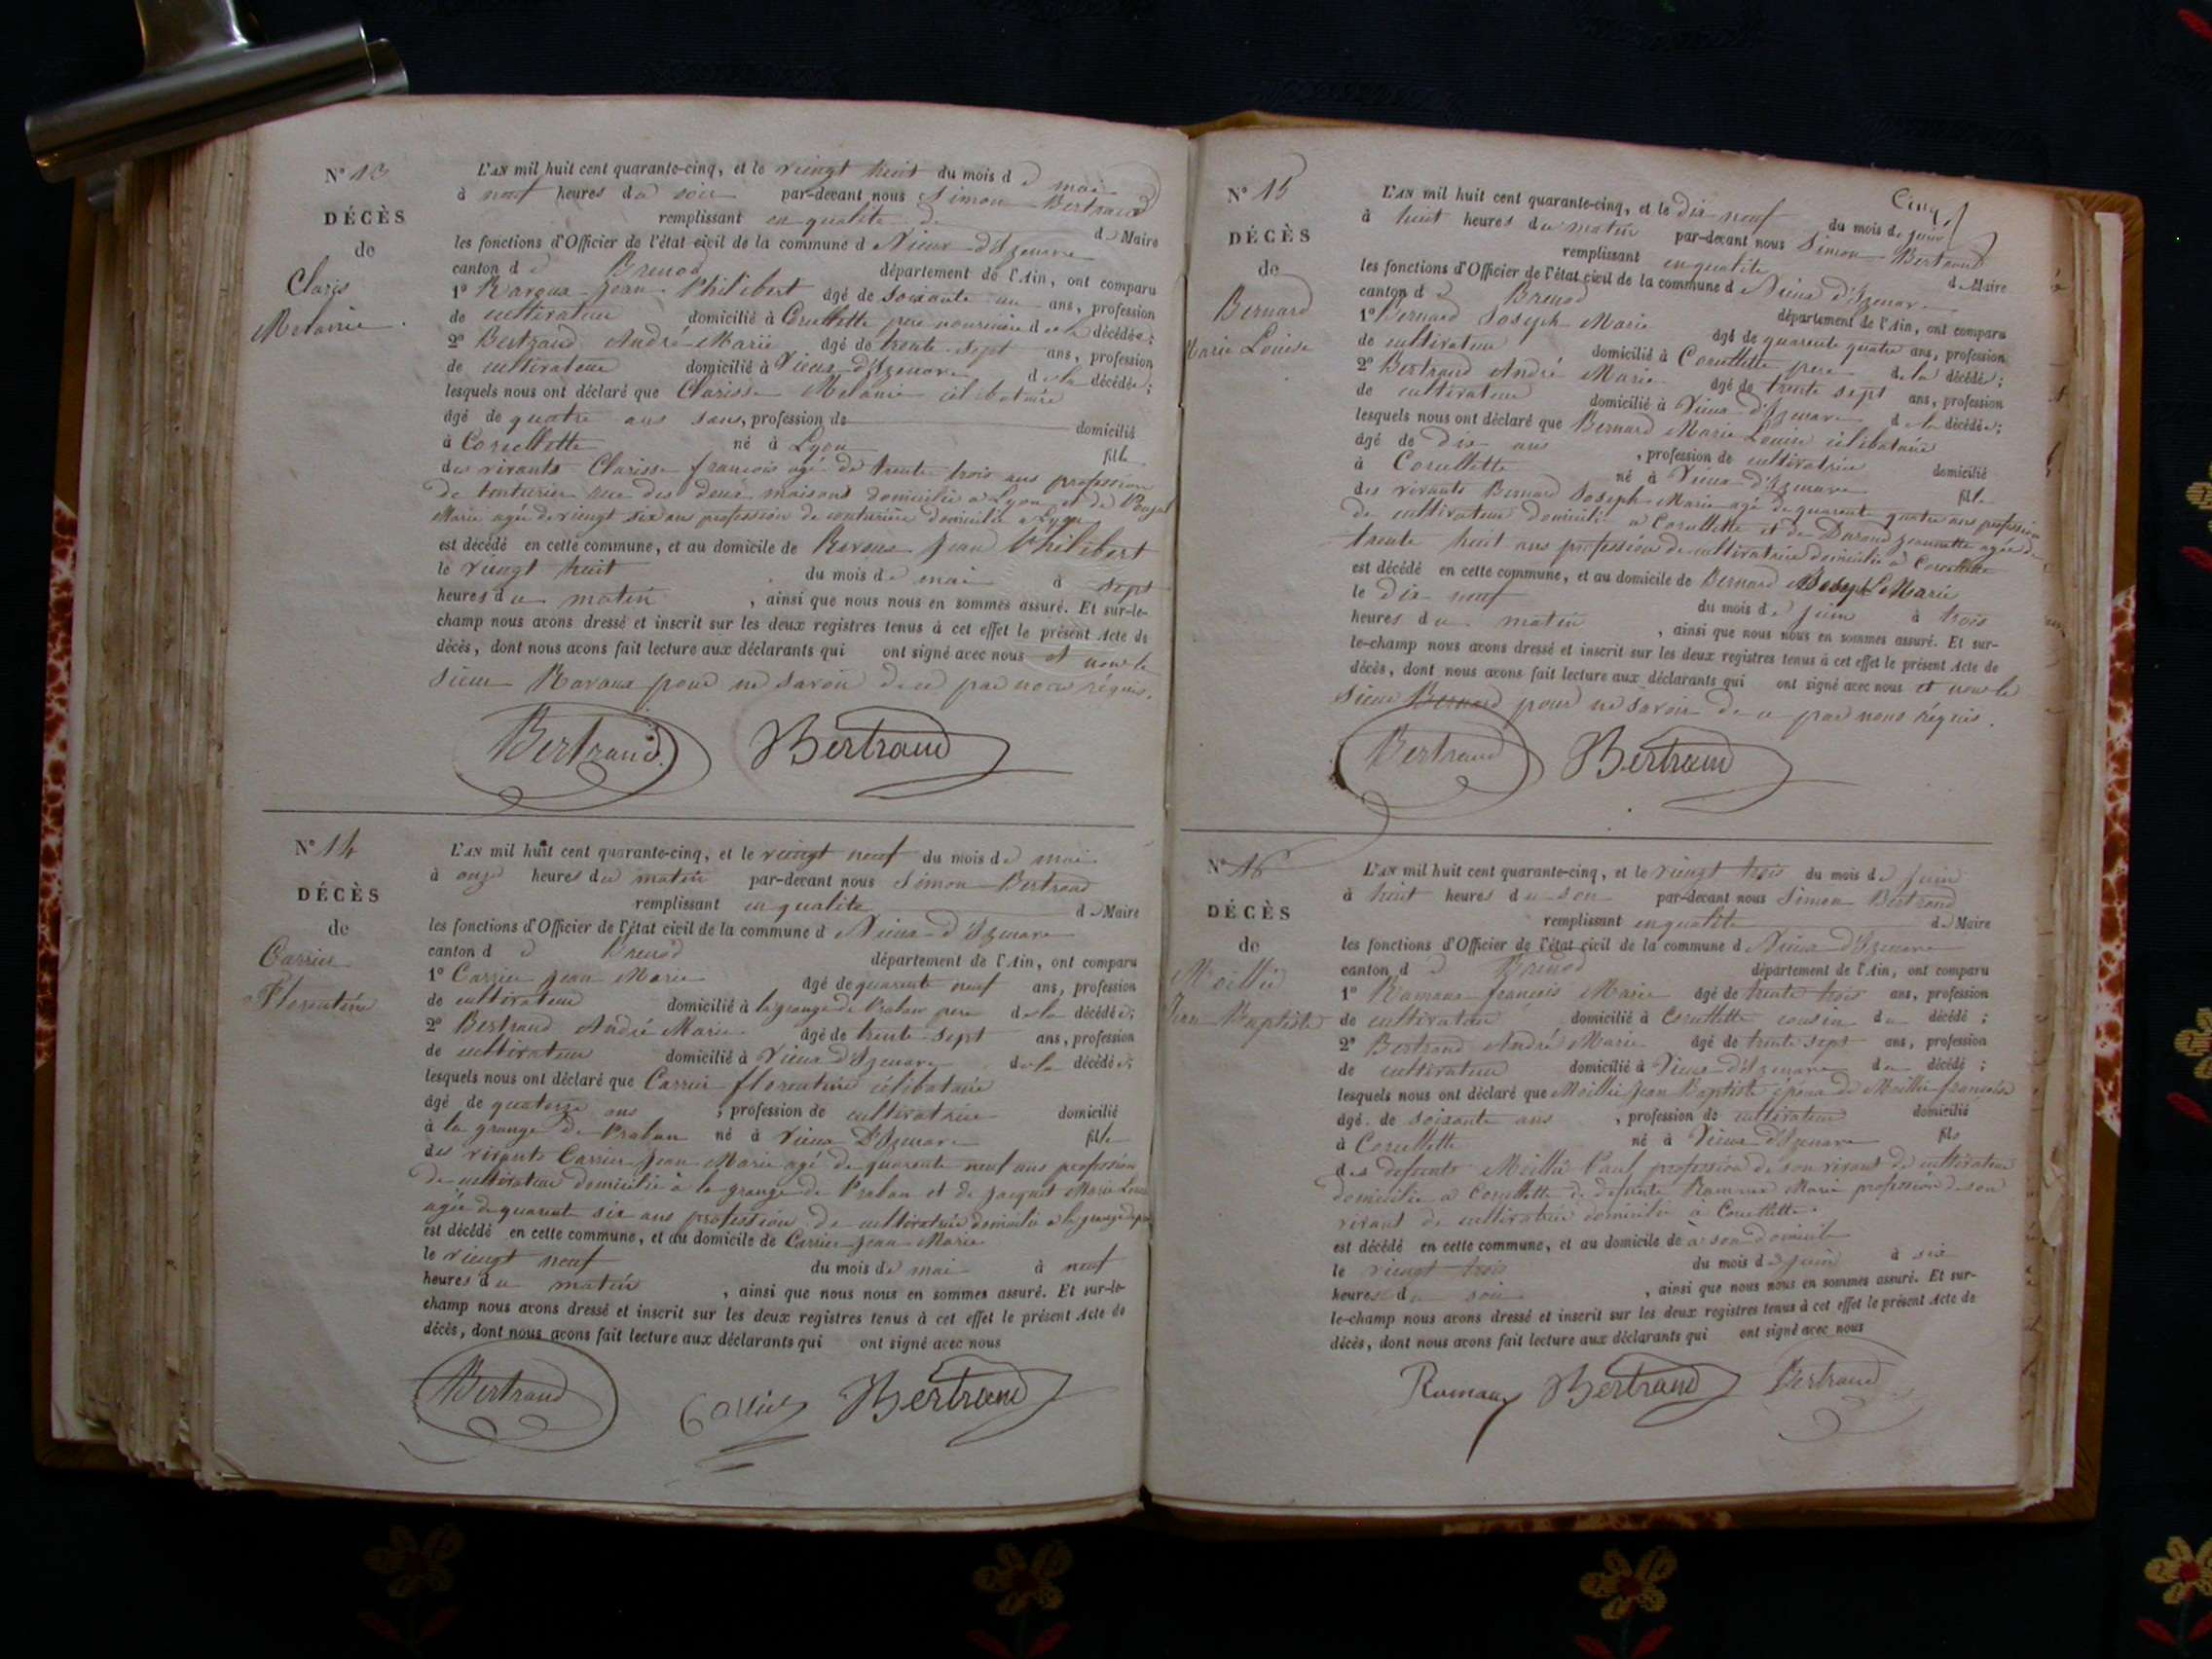 N° 13
DÉCÈS
de
Claris
Melanie
L'AN mil huit cent quarante-cinq, et le vingt huit du mois d e mai
à neuf heures du soir par-devant nous Simon Bertrand
remplissant en qualité de d e Maire
les fonctions d'Officier de l'état civil de la commune d Vieux d'Izenave
canton d e Brenod département de l'Ain, ont comparu
1° Ravoux Jean Philibert âgé de soixante un ans, profession
de cultivateur domicilié à Corcellette pere nouricier d e la décédée;
2° Bertrand André Marie âgé de trente sept ans, profession
de cultivateur domicilié à Vieux d'Izenave d e la décédée;
lesquels nous ont déclaré que Clarisse Melanie célibataire
âgé de quatre ans sans, profession de domicilié
à Corcellette né à Lyon fille
des vivants Clarisse francois agé de trente trois ans profession
de rue des deux maisons domicilié a Lyon et de
Marie agée de vingt six ans profession de couturière domicilié a Lyon
est décédé en cette commune, et au domicile de Ravoux Jean Philibert
le vingt huit du mois de mai à sept
heures du matin, ainsi que nous nous en sommes assuré. Et sur-le-
champ nous avons dressé et inscrit sur les deux registres tenus à cet effet le présent Acte de
décès, dont nous avons fait lecture aux déclarants qui ont signé avec nous et non le
sieur Ravoux pour ne savoir de ce par nous réquis.
Bertrand Bertrand
N° 14
DÉCÈS
de
Carrier
Florentine
L'AN mil huit cent quarante-cinq, et le vingt neuf du mois de mai
à onze heures du matin par-devant nous Simon Bertrand
remplissant en qualité d e Maire
les fonctions d'Officier de l'état civil de la commune d Vieux d'Izenave
canton d e Brenod département de l'Ain, ont comparu
1° Carrier Jean Marie âgé de quarente neuf ans, profession
de cultivateur domicilié à la grange de Praban pere de la décédée;
2° Bertrand André Marie âgé de trente sept ans, profession
de cultivateur domicilié à Vieux d'Izenave de la décédée;
lesquels nous ont déclaré que Carrier florentine célibataire
âgé de quatorze ans ; profession de cultivatrice domicilié
à la grange de Praban né à Vieux D'Izenave fille
des vivants Carrier Jean Marie agé de quarente neuf ans profession
de cultivateur domicilié à la grange de Praban et de Jacquet Marie
agée de quarente six ans profession de cultivatrice domicilié a la grange
est décédé en cette commune, et au domicile de Carrier Jean Marie
le vingt neuf du mois de mai à neuf
heures du matin, ainsi que nous nous en sommes assuré. Et sur-le-
champ nous avons dressé et inscrit sur les deux registres tenus à cet effet le présent Acte de
décès, dont nous avons fait lecture aux déclarants qui ont signé avec nous
Bertrand Carrier Bertrand
Cinq
N° 15
DÉCÈS
de
Bernard
Marie Louise
L'AN mil huit cent quarante-cinq, et le dix neuf du mois de juin
à huit heures du matin par-devant nous Simon Bertrand
remplissant en qualité d e Maire
les fonctions d'Officier de l'état civil de la commune d Vieux d'Izenave
canton d e Brenod département de l'Ain, ont comparu
1° Bernard Joseph Marie âgé de quarente quatre ans, profession
de cultivateur domicilié à Corcellette pere de la décédée;
2° Bertrand André Marie âgé de trente sept ans, profession
de cultivateur domicilié à Vieux d'Izenave de la décédée;
lesquels nous ont déclaré que Bernard Marie Louise célibataire
âgé de dix ans, profession de cultivatrice domicilié
à Corcellette né à Vieux d'Izenave fille
des vivants Bernard Joseph Marie agé de quarente quatre ans profession
de cultivateur domicilié a Corcellette et de Durand Jeannette agée de
trente huit ans profession de cultivatrice domicilié à Corcellette
est décédé en cette commune, et au domicile de Bernard Joseph Marie
le dix neuf du mois de juin à trois
heures du matin, ainsi que nous nous en sommes assuré. Et sur-
le-champ nous avons dressé et inscrit sur les deux registres tenus à cet effet le présent Acte de
décès, dont nous avons fait lecture aux déclarants qui ont signé avec nous et non le
sieur Bernard pour ne savoir de ce par nous réquis.
Bertrand Bertrand
N° 16
DÉCÈS
de
Moillié
Jean Baptiste
L'AN mil huit cent quarante-cinq, et le vingt trois du mois de juin
à huit heures du soir par-devant nous Simon Bertrand
remplissant en qualité d e Maire
les fonctions d'Officier de l'état civil de la commune d Vieux d'Izenave
canton d e Brenod département de l'Ain, ont comparu
1° Ramaux francois Marie âgé de trente trois ans, profession
de cultivateur domicilié à Corcellette cousin du décédé;
2° Bertrand André Marie âgé de trente sept ans, profession
de cultivateur domicilié à Vieux d'Izenave du décédé;
lesquels nous ont déclaré que Moillié Jean Baptiste époux de Moillié françoise
âgé de soixante ans, profession de cultivateur domicilié
à Corcellette né à Vieux d'Izenave fils
des defunts Moillié Paul profession de son vivant de cultivateur
domicilié a Corcellette de defunte Ramaux Marie profession de son
vivant de cultivatrice domicilié à Corcellette.
est décédé en cette commune, et au domicile de à son domicile
le vingt trois du mois de juin à six
heures du soir, ainsi que nous nous en sommes assuré. Et sur-
le-champ nous avons dressé et inscrit sur les deux registres tenus à cet effet le présent Acte de
décès, dont nous avons fait lecture aux déclarants qui ont signé avec nous
Ramaux Bertrand Bertrand